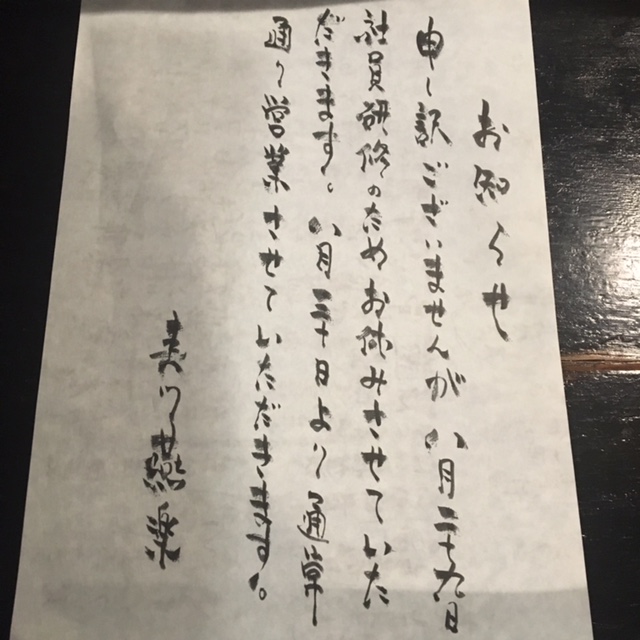 お知らせ
申し訳ございませんが八月二十九日
社員研修のためお休みさせていた
だきます。八月三十日より通常
通り営業させていただきます。
燕楽